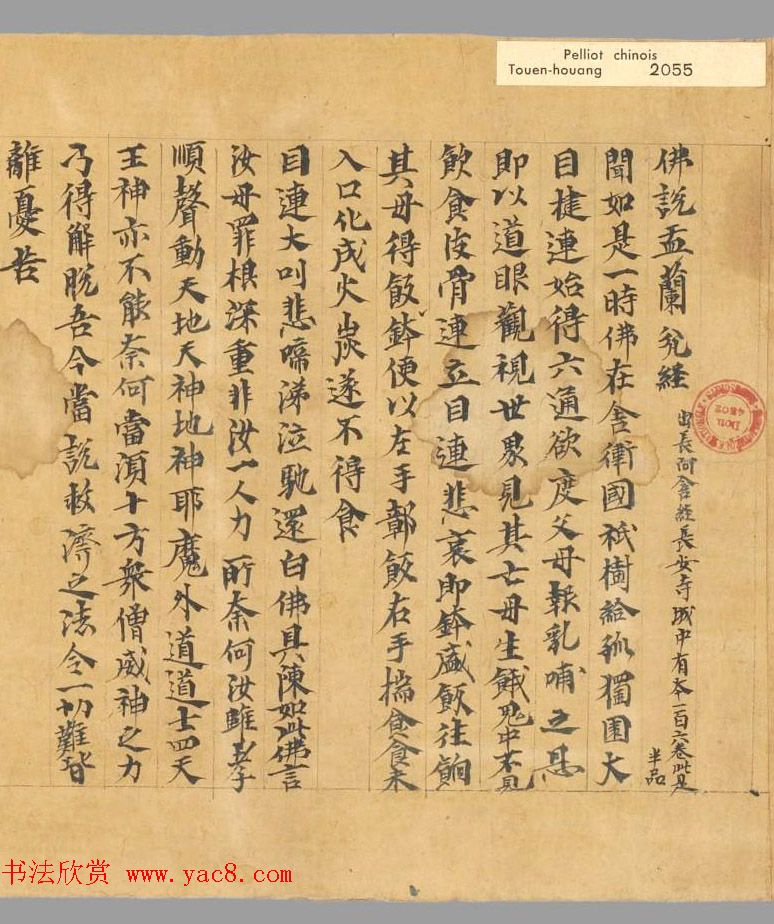 Pelliot chinois
Touen-houang 2055
佛說盂蘭瓫経 出長阿含経長安寺城中有本一百六卷此是
半品
聞如是一時佛在舍衛國祇樹給孤獨園大
目揵連始得六通欲度父母報乳哺之恩
即以道眼觀視世界見其亡母生餓鬼中不見
飲食皮骨連立目連悲哀即鉢盛飯往餉
其母得飯鉢便以左手鄣飯右手揣食食未
入口化成火炭遂不得食
目連大叫悲啼涕泣馳還白佛具陳如此佛言
汝母罪根深重非汝一人力所奈何汝雖孝
順聲動天地天神地神耶魔外道道士四天
王神亦不能奈何當湏十方衆僧威神之力
乃得解脫吾今當說救濟之法令一切難皆
離憂苦
DON
4502
书法欣赏 www.yac8.com